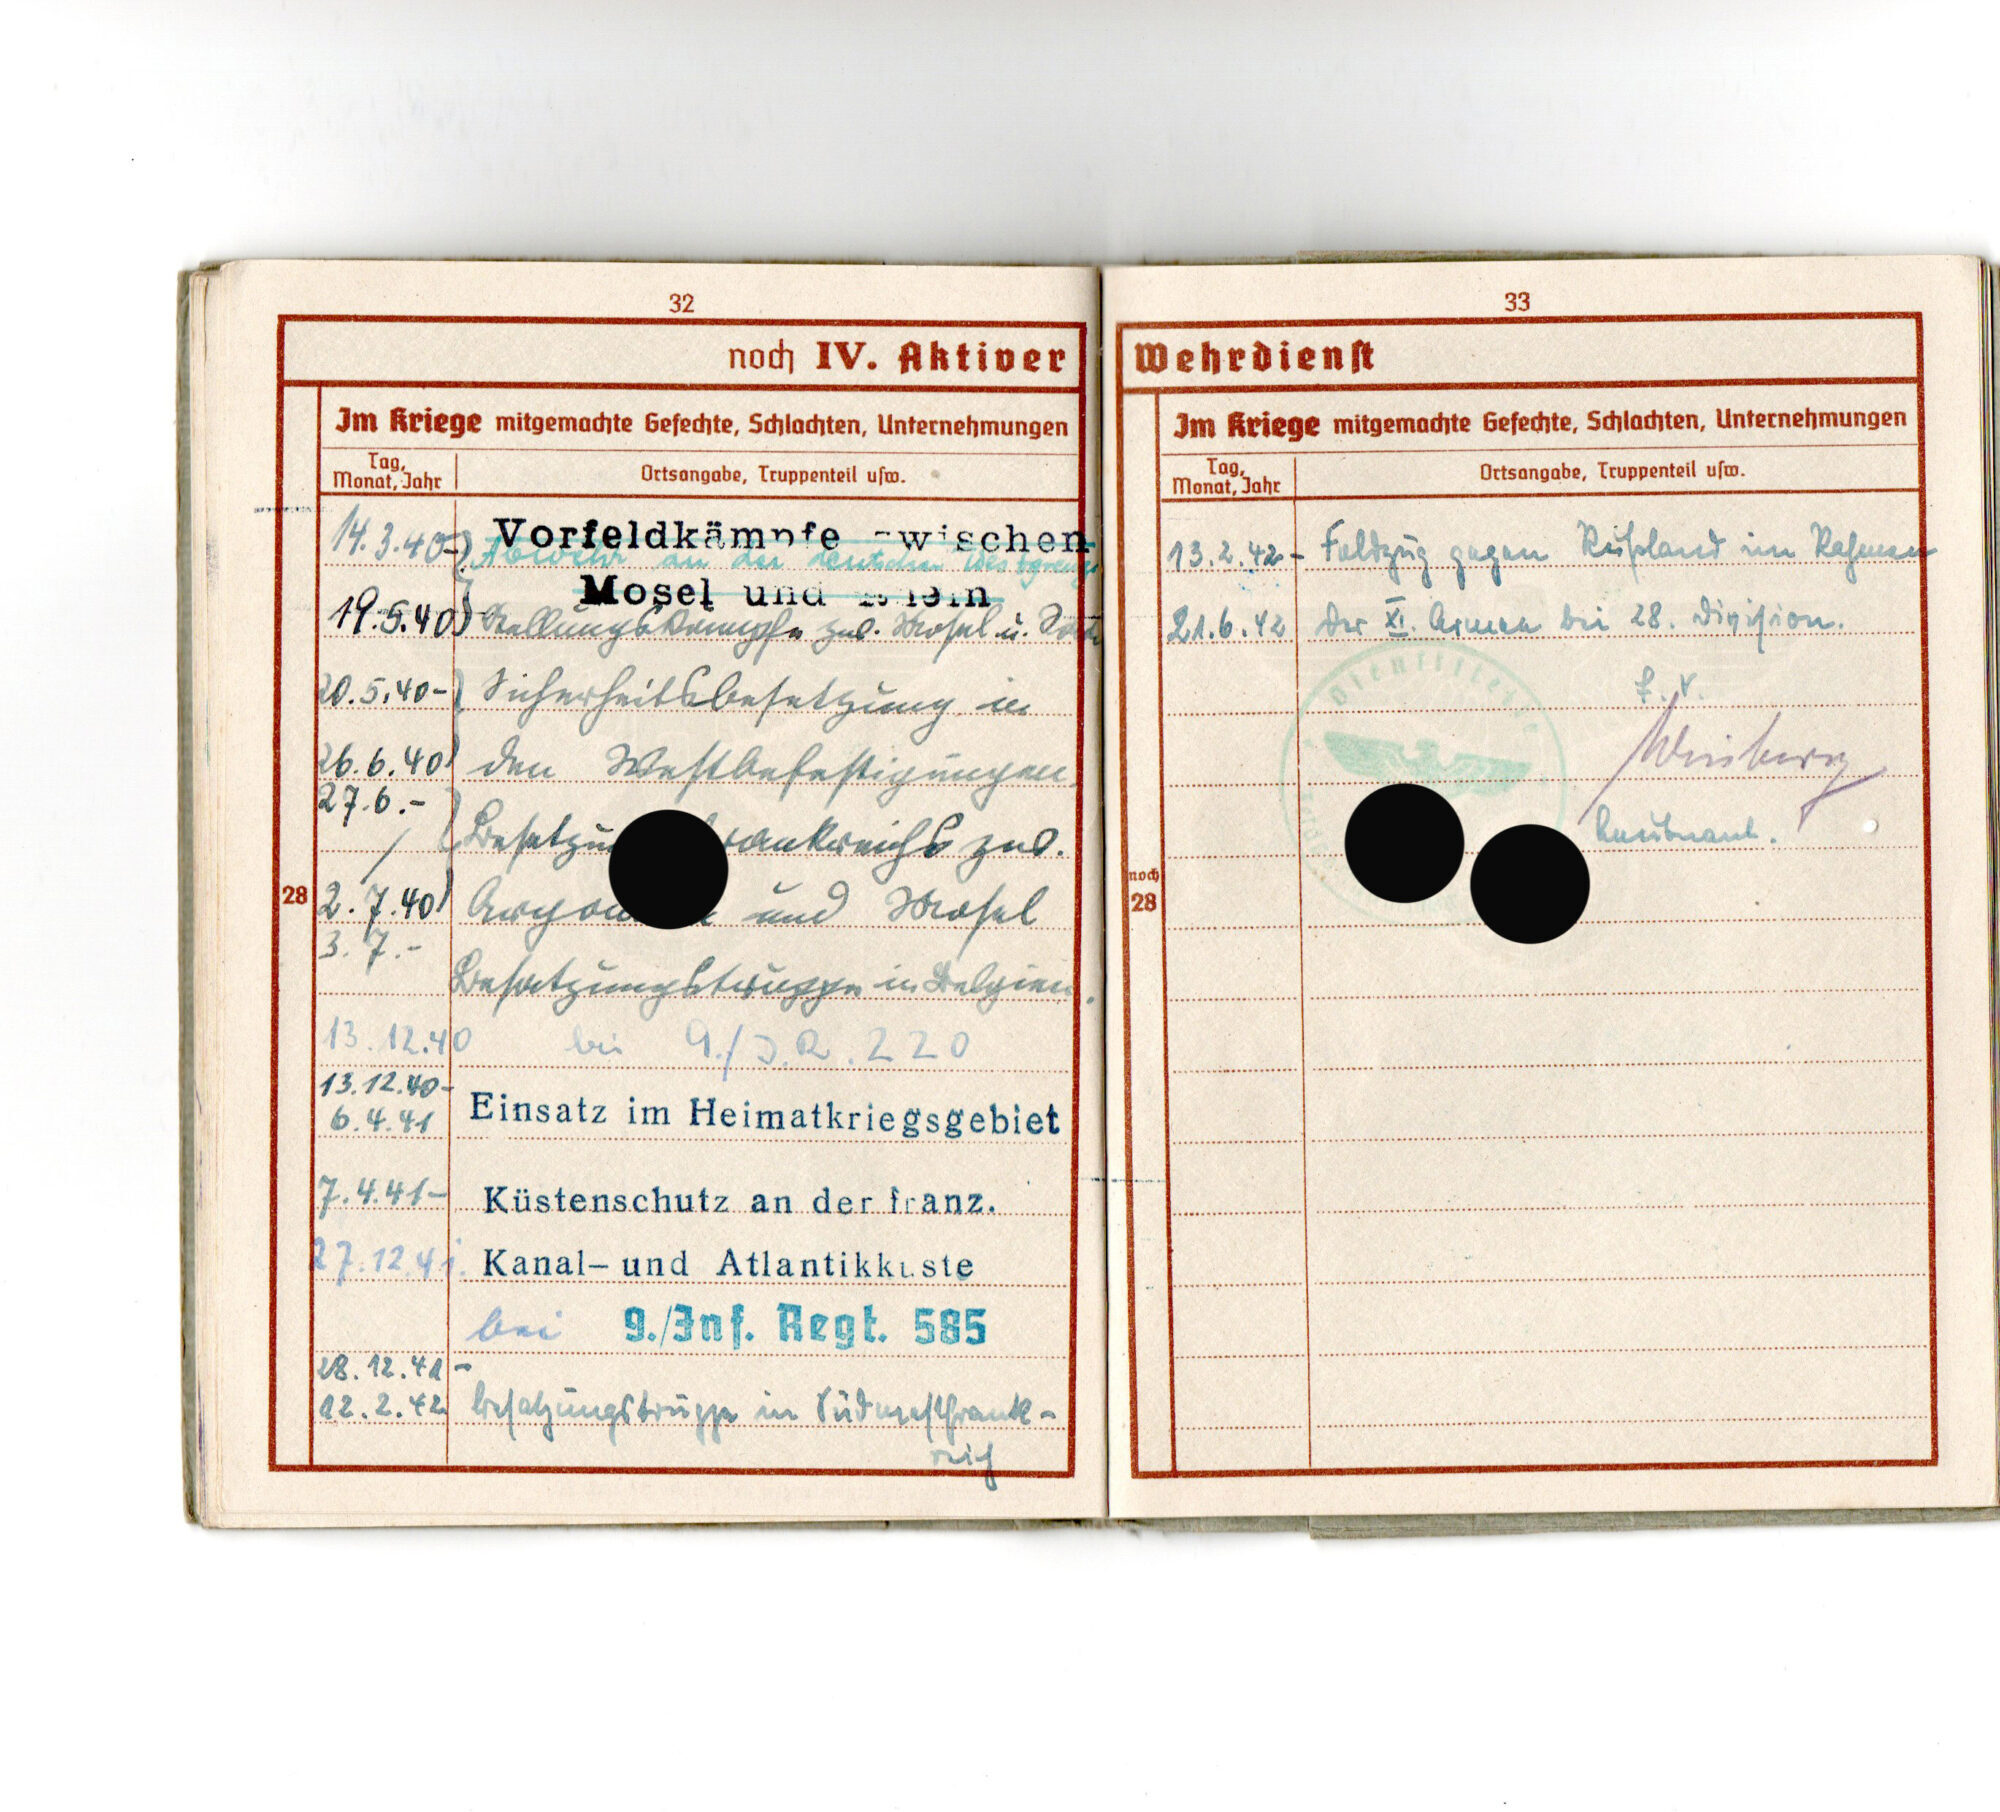 32
noch IV. Aktiver
Im Kriege mitgemachte Gefechte, Schlachten, Unternehmungen
Tag, Monat, Jahr
Ortsangabe, Truppenteil usw.
14.3.40- Vorfeldkämpfe zwischen
Abwehr an der deutschen Westgrenze
Mosel und Rhein
19.5.40 Stellungskämpfe zw. Mosel u.
20.5.40- Sicherheitsbesetzung in
26.6.40 den Westbefestigungen
27.6.-
Besetzung Frankreichs zw.
28
2.7.40 Argonnen und Mosel
3.7.-
Besatzungstruppe in Belgien.
13.12.40 bei 9./J.R. 220
13.12.40-
6.4.41 Einsatz im Heimatkriegsgebiet
7.4.41- Küstenschutz an der franz.
27.12.41. Kanal- und Atlantikküste
bei 9./Inf. Regt. 585
28.12.41-
12.2.42 Besatzungstruppe in Südwestfrank-
reich
33
Wehrdienst
Im Kriege mitgemachte Gefechte, Schlachten, Unternehmungen
Tag, Monat, Jahr
Ortsangabe, Truppenteil usw.
13.2.42- Feldzug gegen Rußland im Rahmen
21.6.42 der XI. Armee bei 28. Division.
Dienststelle
Leutnant.
noch
28